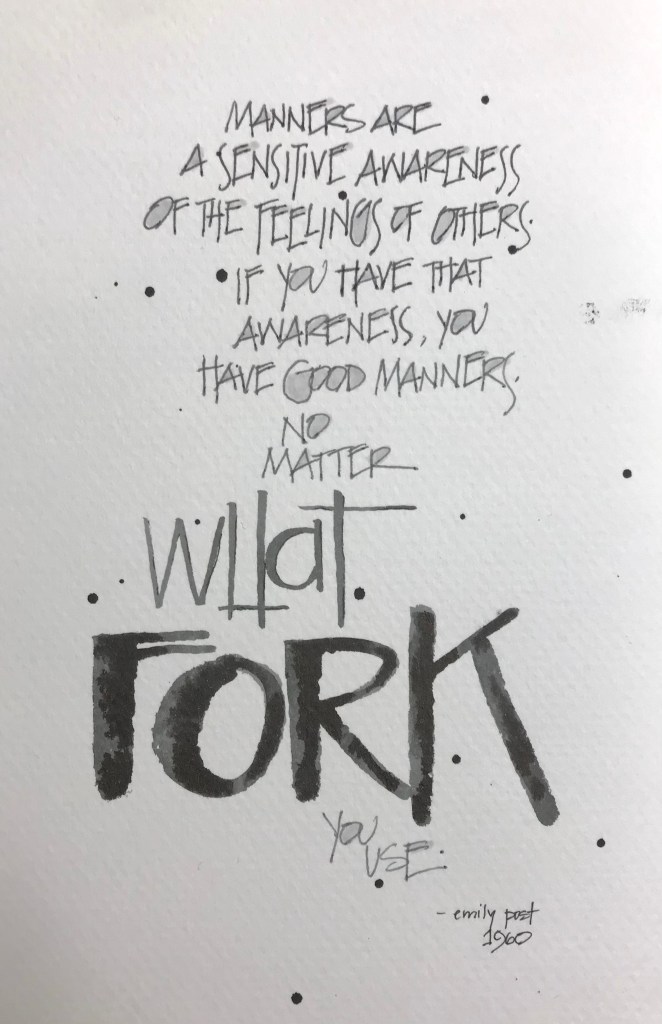 MANNERS ARE
A SENSITIVE AWARENESS
OF THE FEELINGS OF OTHERS.
IF YOU HAVE THAT
AWARENESS, YOU
HAVE GOOD MANNERS.
NO
MATTER
WHaT
FORK
YOU
USE.
- emily post
1960